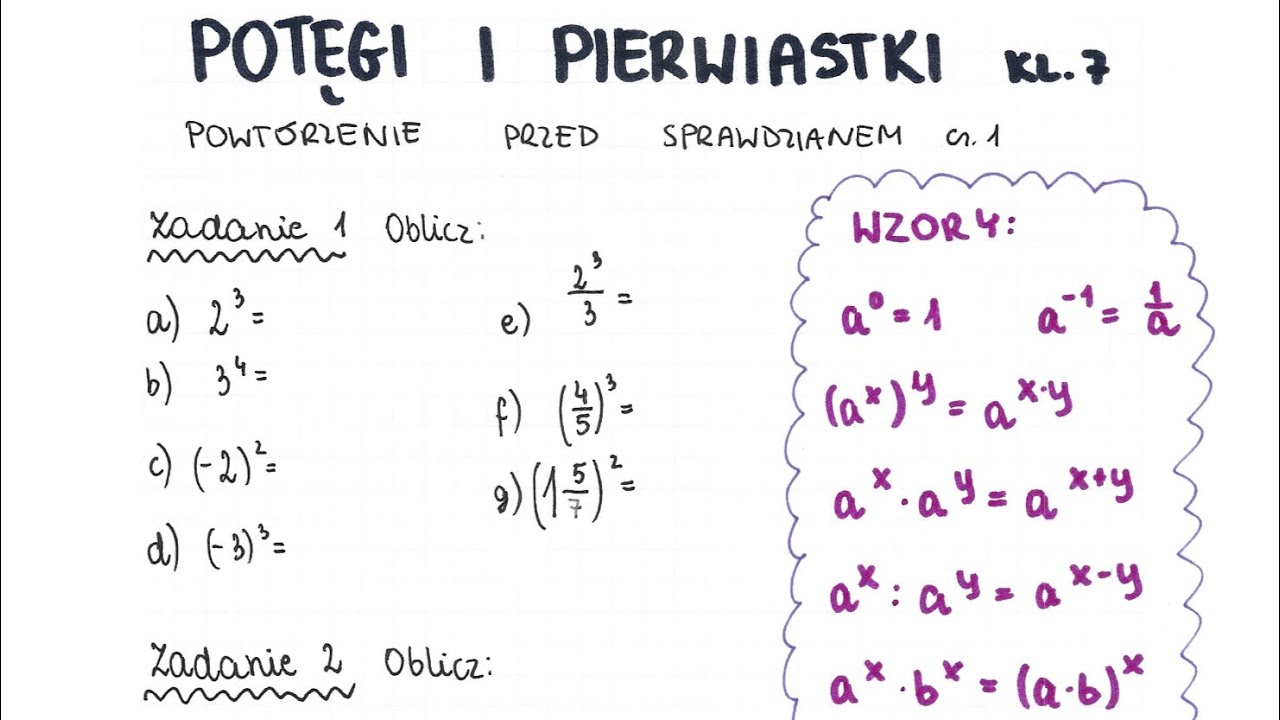 POTĘGI I PIERWIASTKI KL.7
POWTÓRZENIE PRZED SPRAWDZIANEM cz. 1
Zadanie 1 Oblicz:
a) 2³ =
b) 3⁴ =
c) (-2)² =
d) (-3)³ =
e) 2³/3 =
f) (4/5)³ =
g) (1 5/7)² =
Zadanie 2 Oblicz:
WZORY:
a⁰ = 1 a⁻¹ = 1/a
(aˣ)ʸ = aˣ·ʸ
aˣ · aʸ = aˣ⁺ʸ
aˣ : aʸ = aˣ⁻ʸ
aˣ · bˣ = (a·b)ˣ